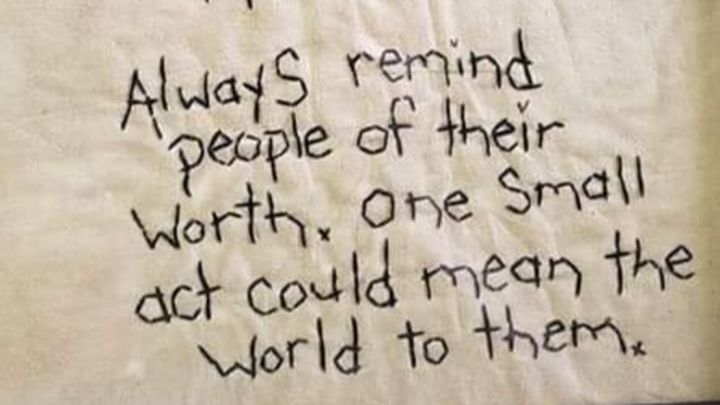 Always remind
people of their
worth. One small
act could mean the
world to them.